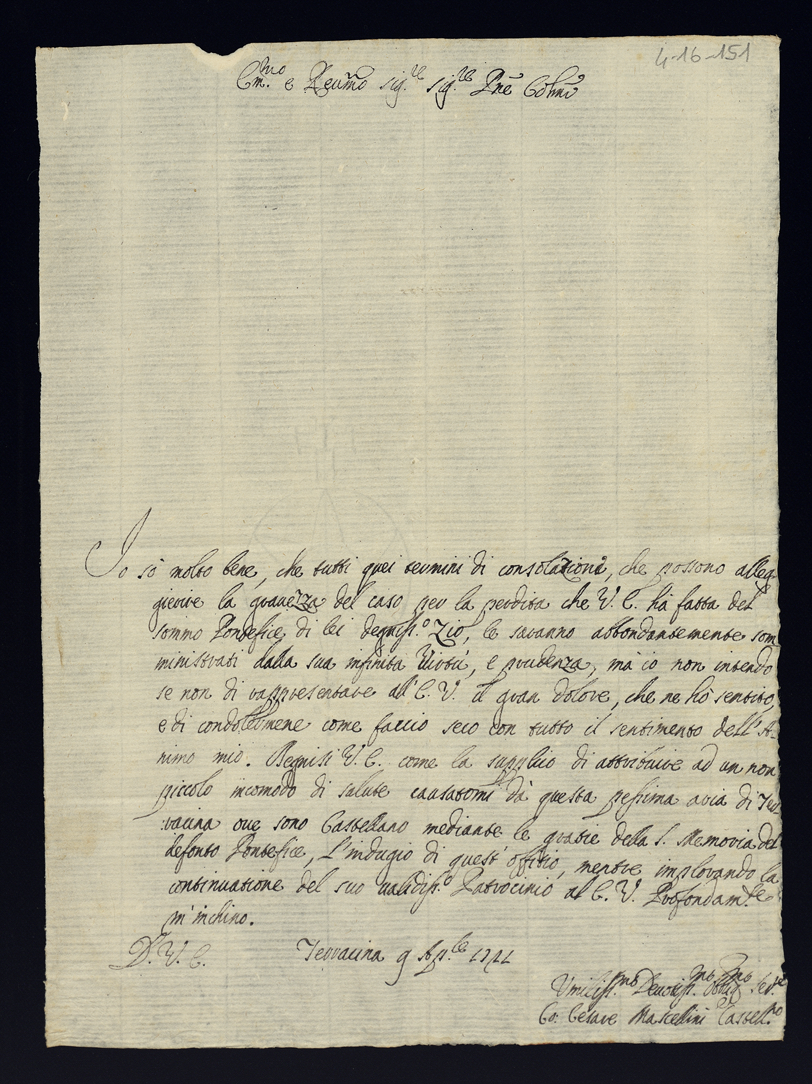 4-16-151
Em.mo e Reumo sig.re sig.re Pne Colmo
Io sò molto bene, che tutti quei termini di consolazione, che possono alleg-
gierire la gravezza del caso per la perdita che V. E. hà fatta del
sommo Pontefice, di lei degniss.o Zio, le saranno abbondantemente som
ministrati dalla sua infinita Virtù, e prudenza, mà io non intendo
se non di rappresentare all'E. V. il gran dolore, che ne hò sentito,
e di condolermene come faccio seco con tutto il sentimento dell'A-
nimo mio. Degnisi V. E. come la supplico di attribuire ad un non
piccolo incomodo di salute causatomi dà questa pessima aria di Ter
racina ove sono Castellano mediante le gratie della S. Memoria del
defonto Pontefice, L'indugio di quest'offitio, mentre implorando la
continuatione del suo validiss.o Patrocinio al E. V. Profondam.te
m'inchino.
D. V. E. Terracina 9 Ap.le 1721
Umiliss.mo Devotiss.mo Obblig.mo Se.re
Co: Cesare Mascellini Castell.no